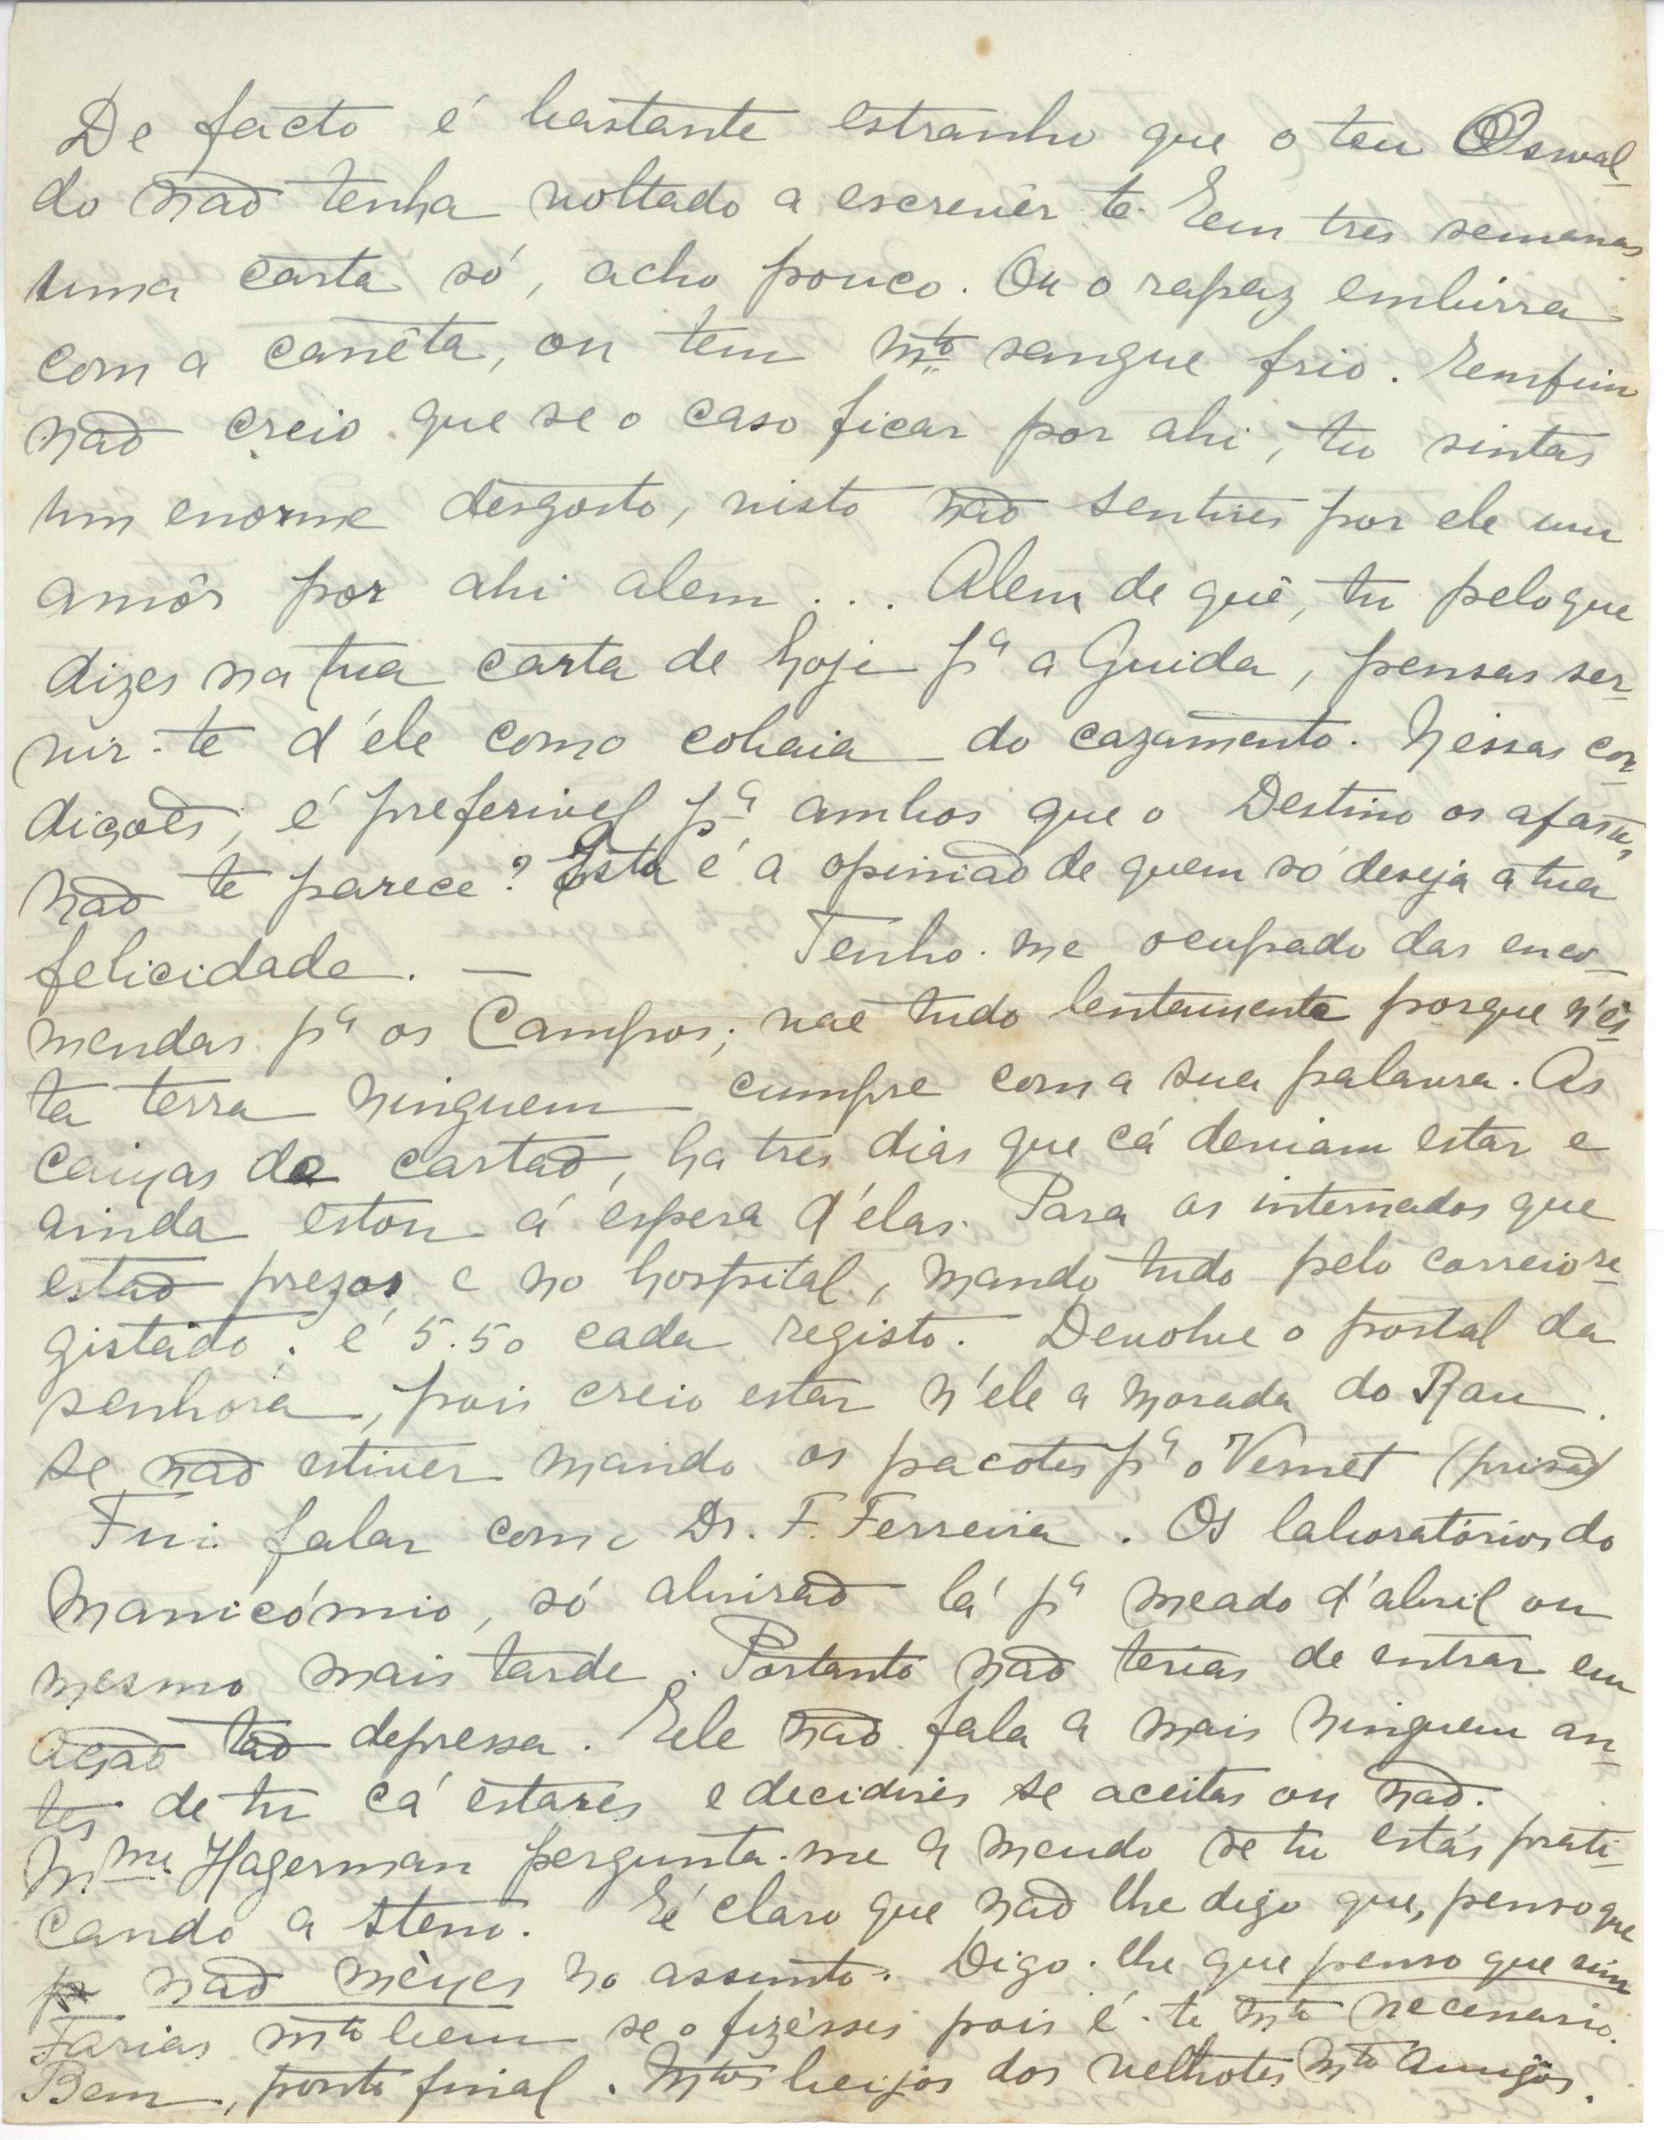 De facto é bastante estranho que o teu Oswal-
do não tenha voltado a escrevêr-te. Em tres semanas
uma carta só, acho pouco. Ou o rapaz embirra
com a canêta, ou tem mto sangue frio. Emfim
não creio que se o caso ficar por ahi, tu sintas
um enorme desgosto, visto não sentires por ele um
amôr por ahi alem... Alem de quê, tu pelo que
dizes na tua carta de hoje pa a Guida, pensas ser-
vir-te d'éle como cobaia do cazamento. Néssas con-
dições, é preferivel pa ambos que o Destino os afaste,
não te parece? Esta é a opinião de quem só deseja a tua
felicidade. — Tenho-me ocupado das enco-
mendas pa os Campos; vae tudo lentamente porque n'és-
ta terra ninguem cumpre com a sua palavra. As
caixas de cartão, ha tres dias que cá deviam estar e
ainda estou á espera d'élas. Para os internados que
estão prezos e no hospital, mando tudo pelo correio re-
gistado. é 5.50 cada registo. Devolve o postal da
senhora, pois creio estar n'éle a morada do Rau.
se não estiver mando os pacotes pa o Vernet (prisão)
Fui falar com o Dr. F. Ferreira. Os laboratórios do
Manicómio, só abrirão lá pa meado d'abril ou
mesmo mais tarde. Portanto não terias de entrar em
acção tão depressa. Ele não fala a mais ninguem an-
tes de tu cá estares e decidires se aceitas ou não.
Mme. Hagerman pergunta-me a meudo se tu estás prati-
cando a steno. É claro que não lhe digo que, penso que
não mèxes no assunto. Digo-lhe que penso que sim
Farias mto bem se o fizésses pois é-te mto necessario.
Bem, ponto final. Mtos beijos dos velhotes mto Amigos.